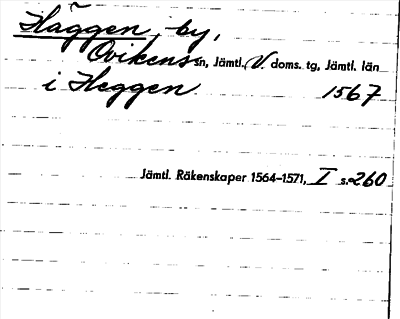 Häggen, by,
Ovikens sn, Jämtl. V. doms. tg, Jämtl. län
i Heggen 1567
Jämtl. Räkenskaper 1564–1571, I s. 260